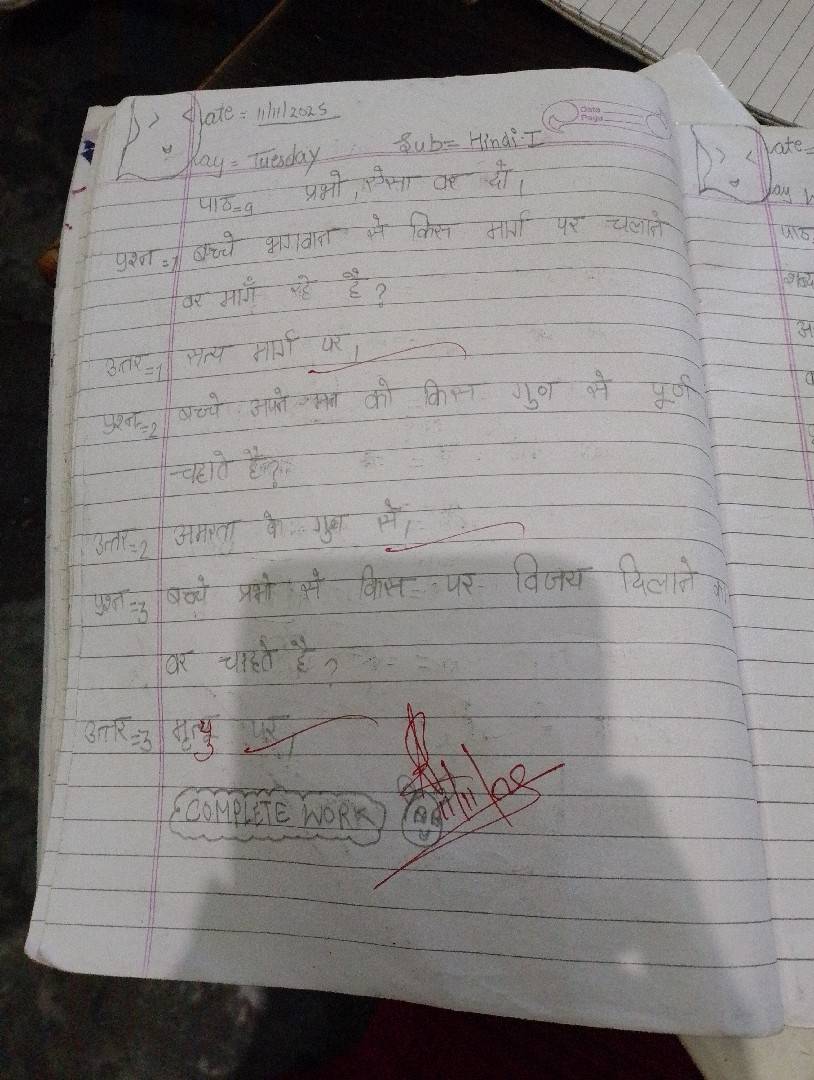 Date = 11/11/2025
Day = Tuesday Sub = Hindi-I
Date
Page
पाठ=9 प्रभो, ऐसा वर दो।
प्रश्न=1 बच्चे भगवान से किस मार्ग पर चलाने
वर माँग रहे है?
उत्तर=1 सत्य मार्ग पर।
प्रश्न=2 बच्चे अपने मन को किस गुण से पूर्ण
चहाते है?
उत्तर=2 अमरता के गुण से।
प्रश्न=3 बच्चे प्रभो से किस पर विजय दिलाने का
वर चाहते है?
उत्तर=3 मृत्यु पर।
COMPLETE WORK
ate=
ay W
पाठ